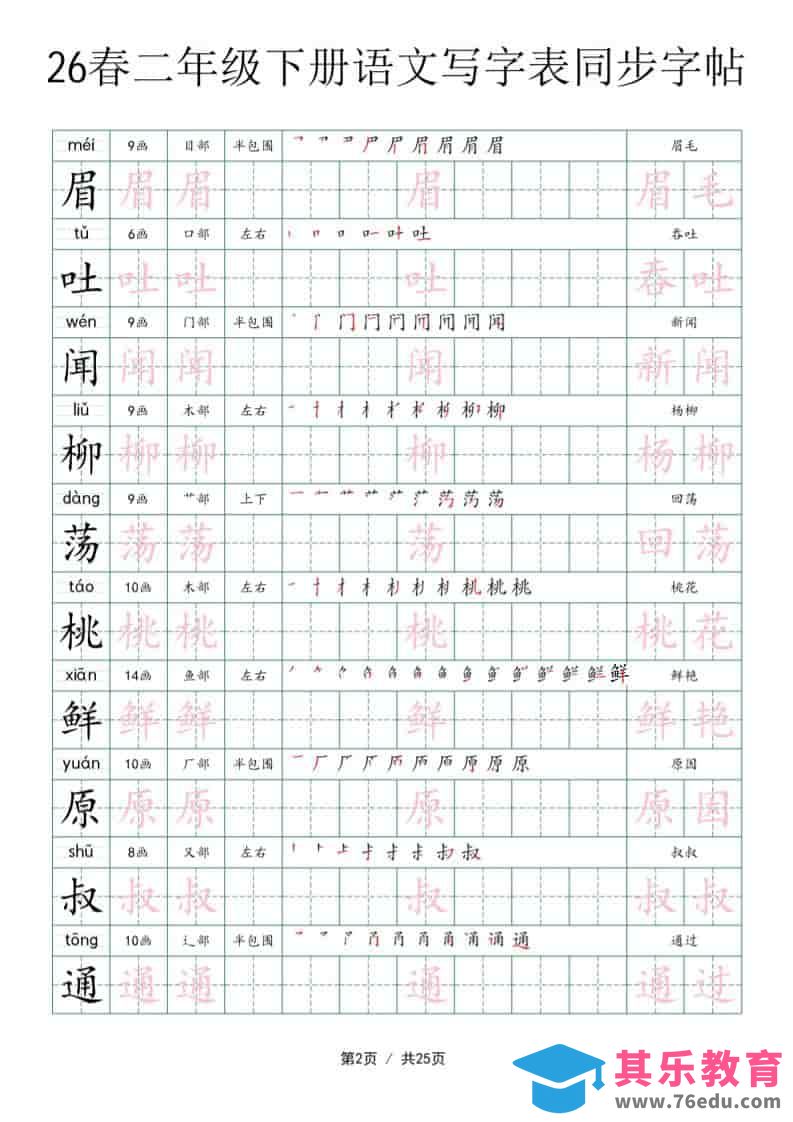 26春二年级下册语文写字表同步字帖
méi 9画 目部 半包围 眉毛
眉 眉 眉 眉 眉 毛
tǔ 6画 口部 左右 吞吐
吐 吐 吐 吐 吞 吐
wén 9画 门部 半包围 新闻
闻 闻 闻 闻 新 闻
liǔ 9画 木部 左右 杨柳
柳 柳 柳 柳 杨 柳
dàng 9画 艹部 上下 回荡
荡 荡 荡 荡 回 荡
táo 10画 木部 左右 桃花
桃 桃 桃 桃 桃 花
xiān 14画 鱼部 左右 鲜艳
鲜 鲜 鲜 鲜 鲜 艳
yuán 10画 厂部 半包围 原因
原 原 原 原 原 因
shū 8画 又部 左右 叔叔
叔 叔 叔 叔 叔 叔
tōng 10画 辶部 半包围 通过
通 通 通 通 通 过
第2页 / 共25页
其乐教育
www.76edu.com